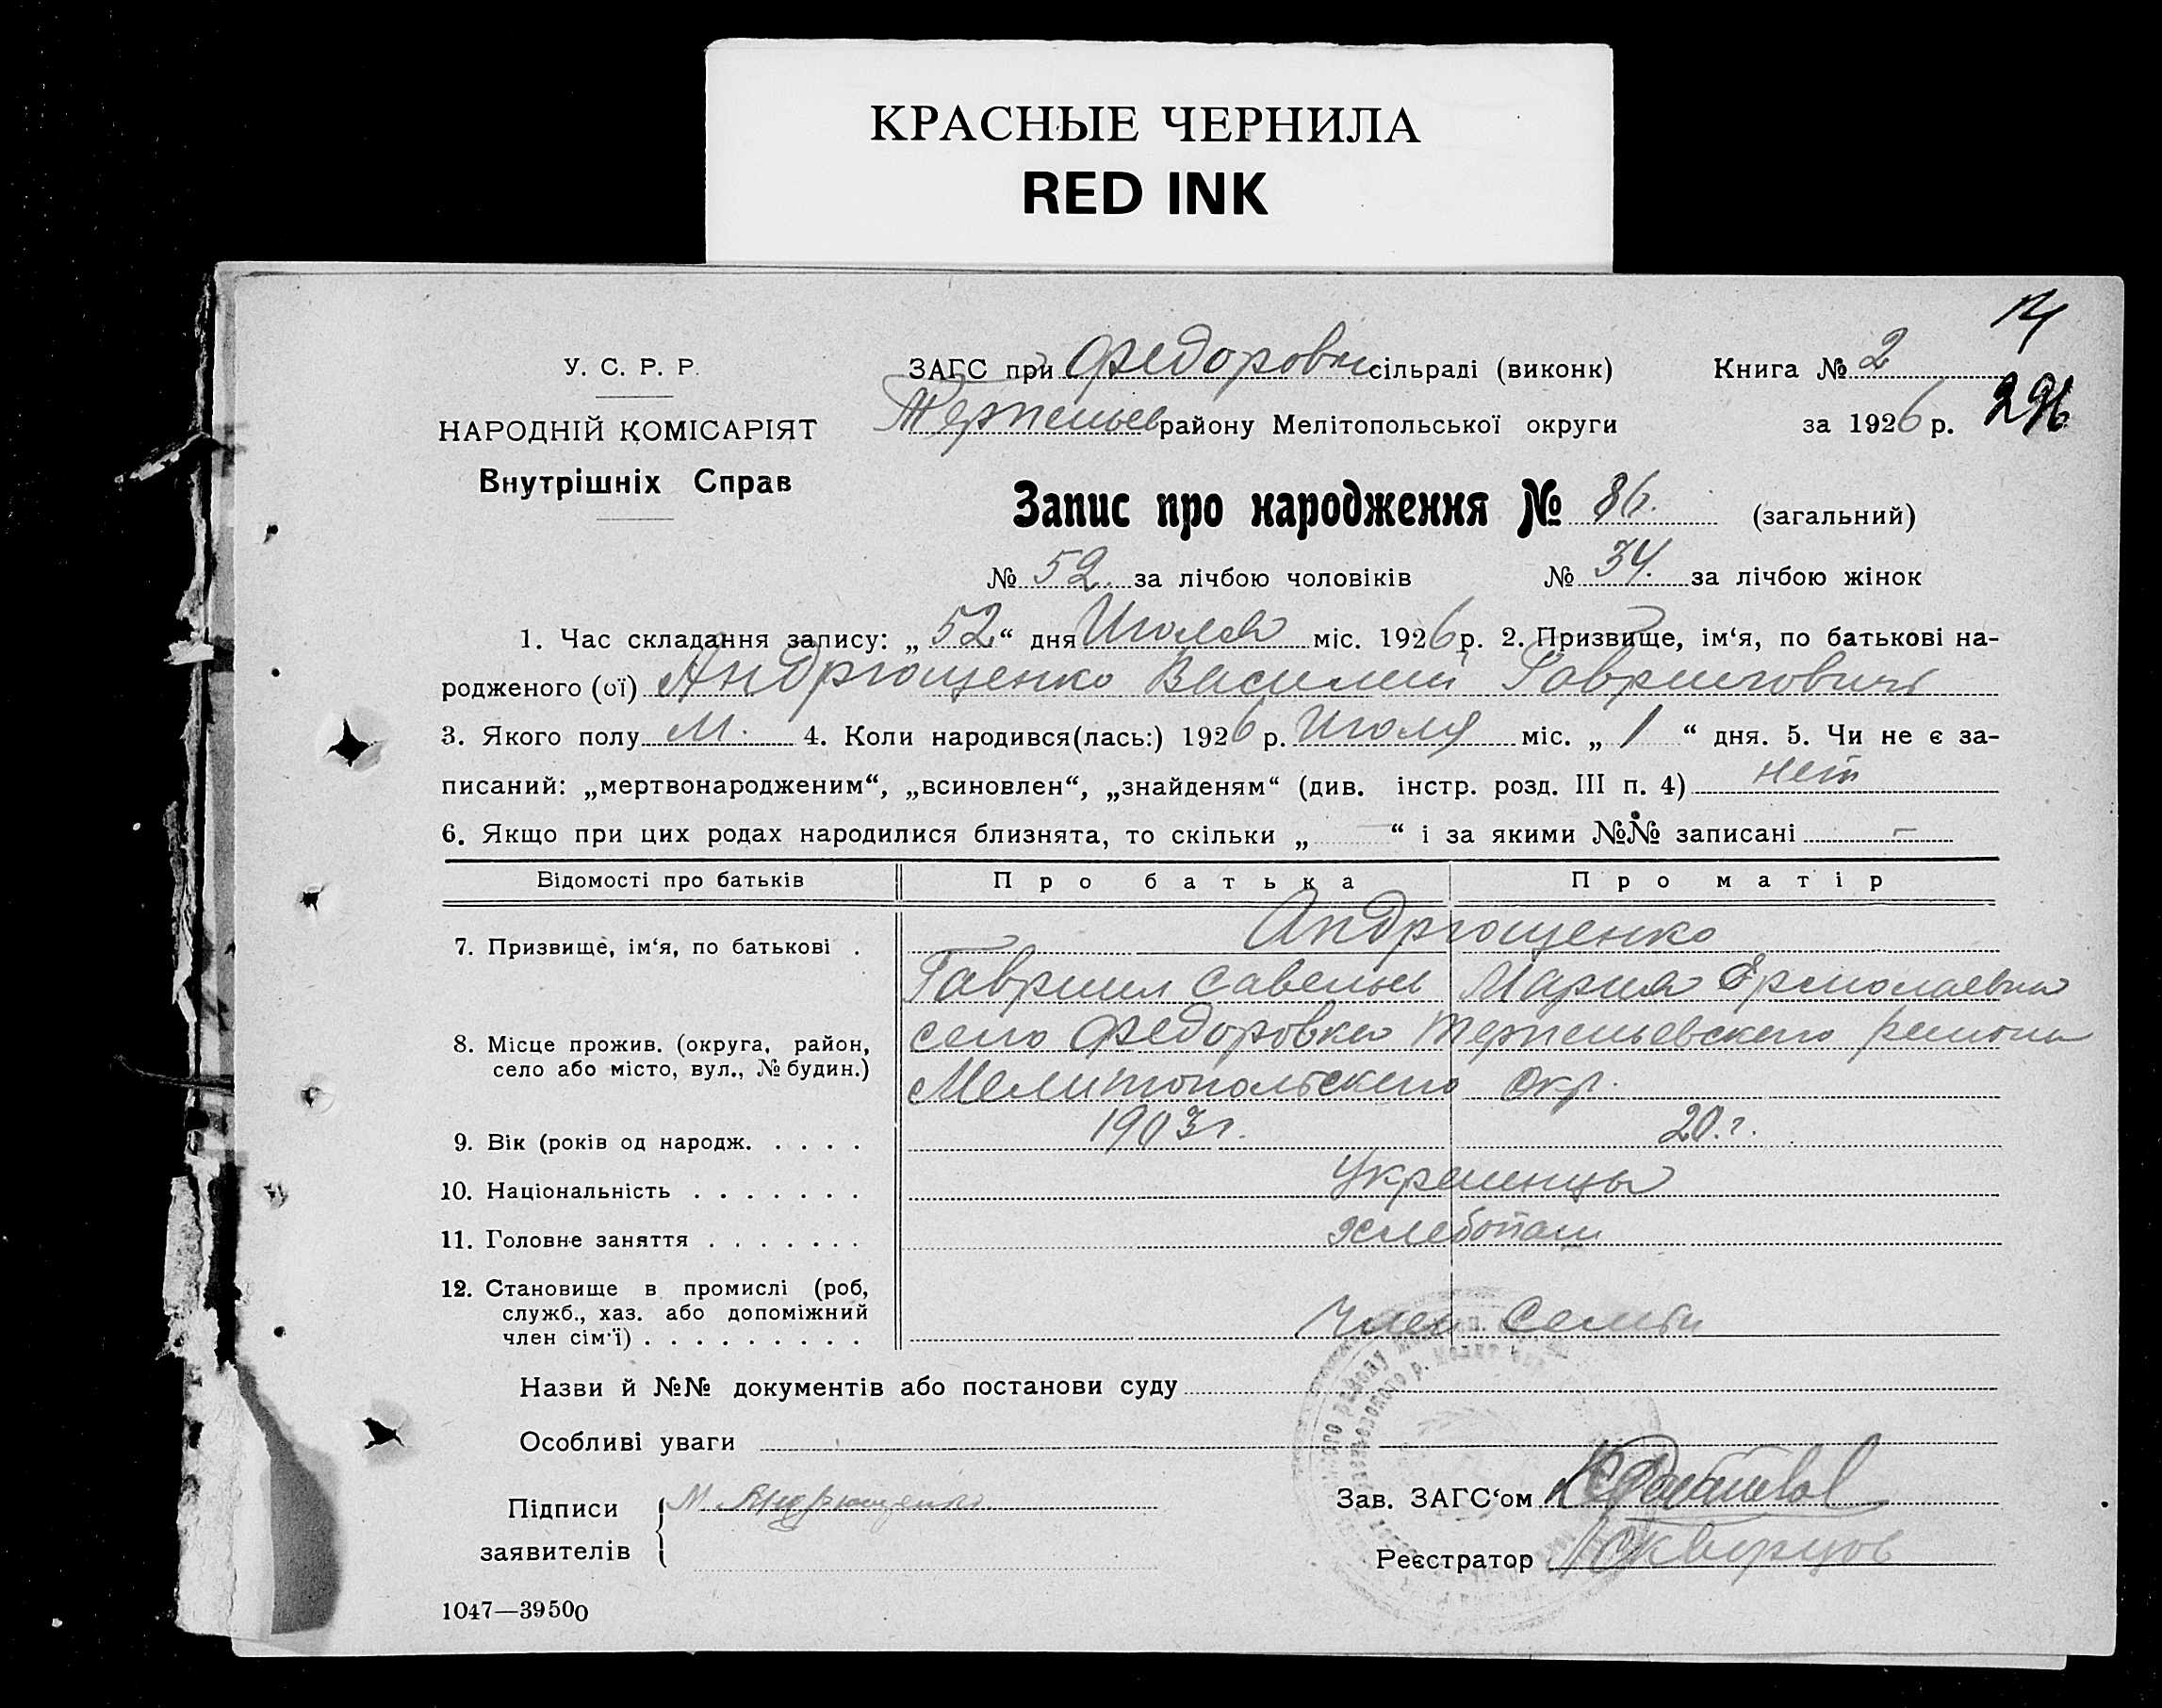 КРАСНЫЕ ЧЕРНИЛА
RED INK
14
У. С. Р. Р.
НАРОДНІЙ КОМІСАРІЯТ
Внутрішніх Справ
ЗАГС при Федоровк сільраді (виконк) Книга № 2
Терпеньев району Мелітопольської округи за 1926 р. 296
Запис про народження № 86. (загальний)
№ 52. за лічбою чоловіків № 34. за лічбою жінок
1. Час складання запису: „ 52 “ дня Июля міс. 1926 р. 2. Призвище, ім‘я, по батькові на-
родженого (ої) Андрющенко Василий Гаврилович
3. Якого полу М. 4. Коли народився(лась:) 1926 р. Июля міс. „ 1 “ дня. 5. Чи не є за-
писаний: „мертвонародженим“, „всиновлен“, „знайденям“ (див. інстр. розд. III п. 4) нет
6. Якщо при цих родах народилися близнята, то скільки „ “ і за якими №№ записані –
Відомості про батьків Про батька Про матір
7. Призвище, ім‘я, по батькові . Андрющенко
Гавриил Савельев Мария Ермолаевна
8. Місце прожив. (округа, район, село або місто, вул., № будин.) село Федоровка Терпеньевского района
Мелитопольского Окр.
9. Вік (років од народж. . . . . 1903 г. 20. г.
10. Національність . . . . . . . Украинцы
11. Головне заняття . . . . . . . хлебопаш
12. Становище в промислі (роб,
служб., хаз. або допоміжний
член сім‘ї) . . . . . . . . . Член Семьи
Назви й №№ документів або постанови суду
Особливі уваги
Підписи
заявителів
М Андрющенко
Зав. ЗАГС‘ом
Реєстратор Скворцов
1047—39500